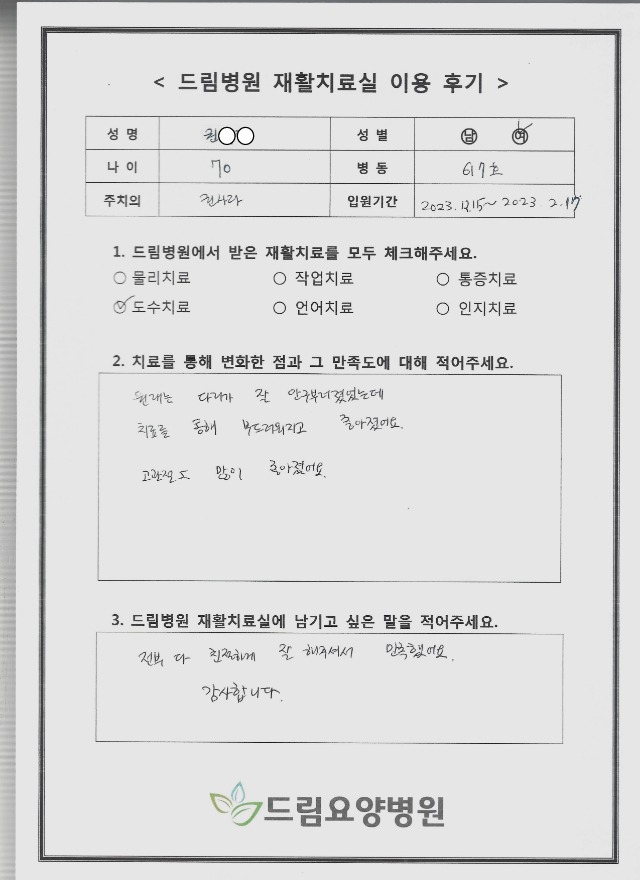 < 드림병원 재활치료실 이용 후기 >
성 명 권○○ 성 별 남 여
나 이 70 병 동 617호
주치의 권사라 입원기간 2023.12.15~ 2023. 2.17
1. 드림병원에서 받은 재활치료를 모두 체크해주세요.
○ 물리치료 ○ 작업치료 ○ 통증치료
○ 도수치료 ○ 언어치료 ○ 인지치료
2. 치료를 통해 변화한 점과 그 만족도에 대해 적어주세요.
원래는 다리가 잘 안구부러졌었는데
치료를 통해 부드러워지고 좋아졌어요.
고관절도 많이 좋아졌어요.
3. 드림병원 재활치료실에 남기고 싶은 말을 적어주세요.
전부 다 친절하게 잘 해주셔서 만족했어요.
감사합니다.
드림요양병원